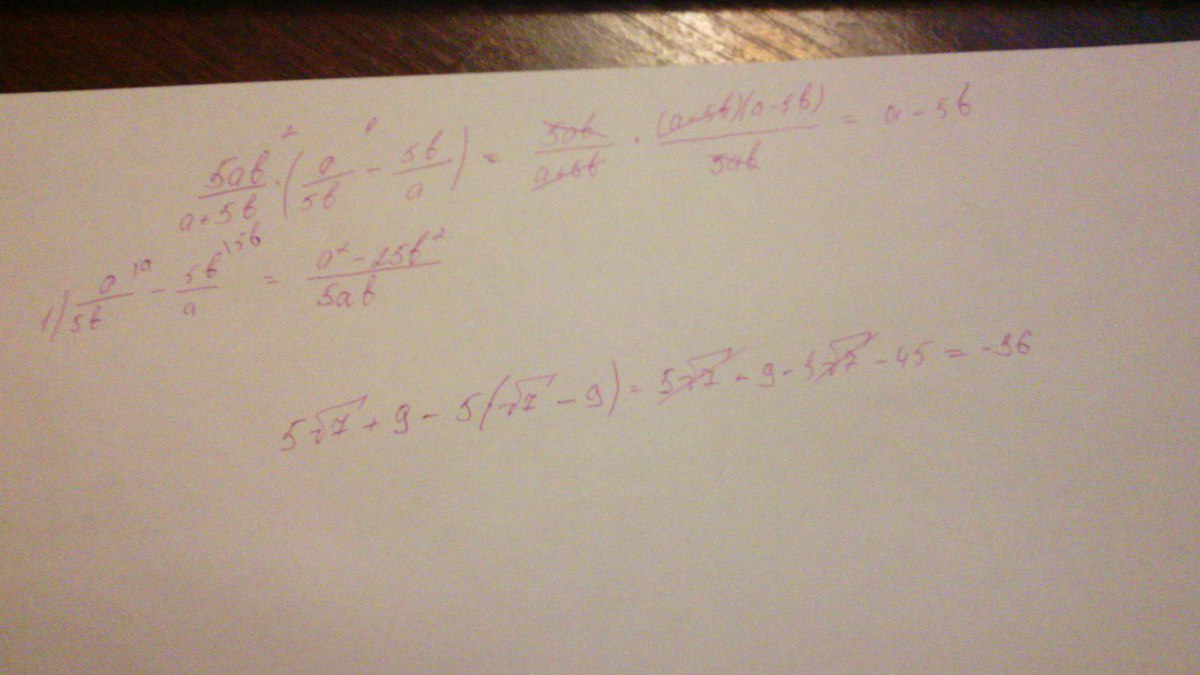 5ab/(a+5b) ·² (a/5b -¹ 5b/a) = 5ab/(a+5b) · (a+5b)(a-5b)/5ab = a - 5b
1) a/5b \a - 5b/a \5b = (a² - 25b²)/5ab
5√7 + 9 - 5(√7 - 9) = 5√7 + 9 - 5√7 - 45 = -36